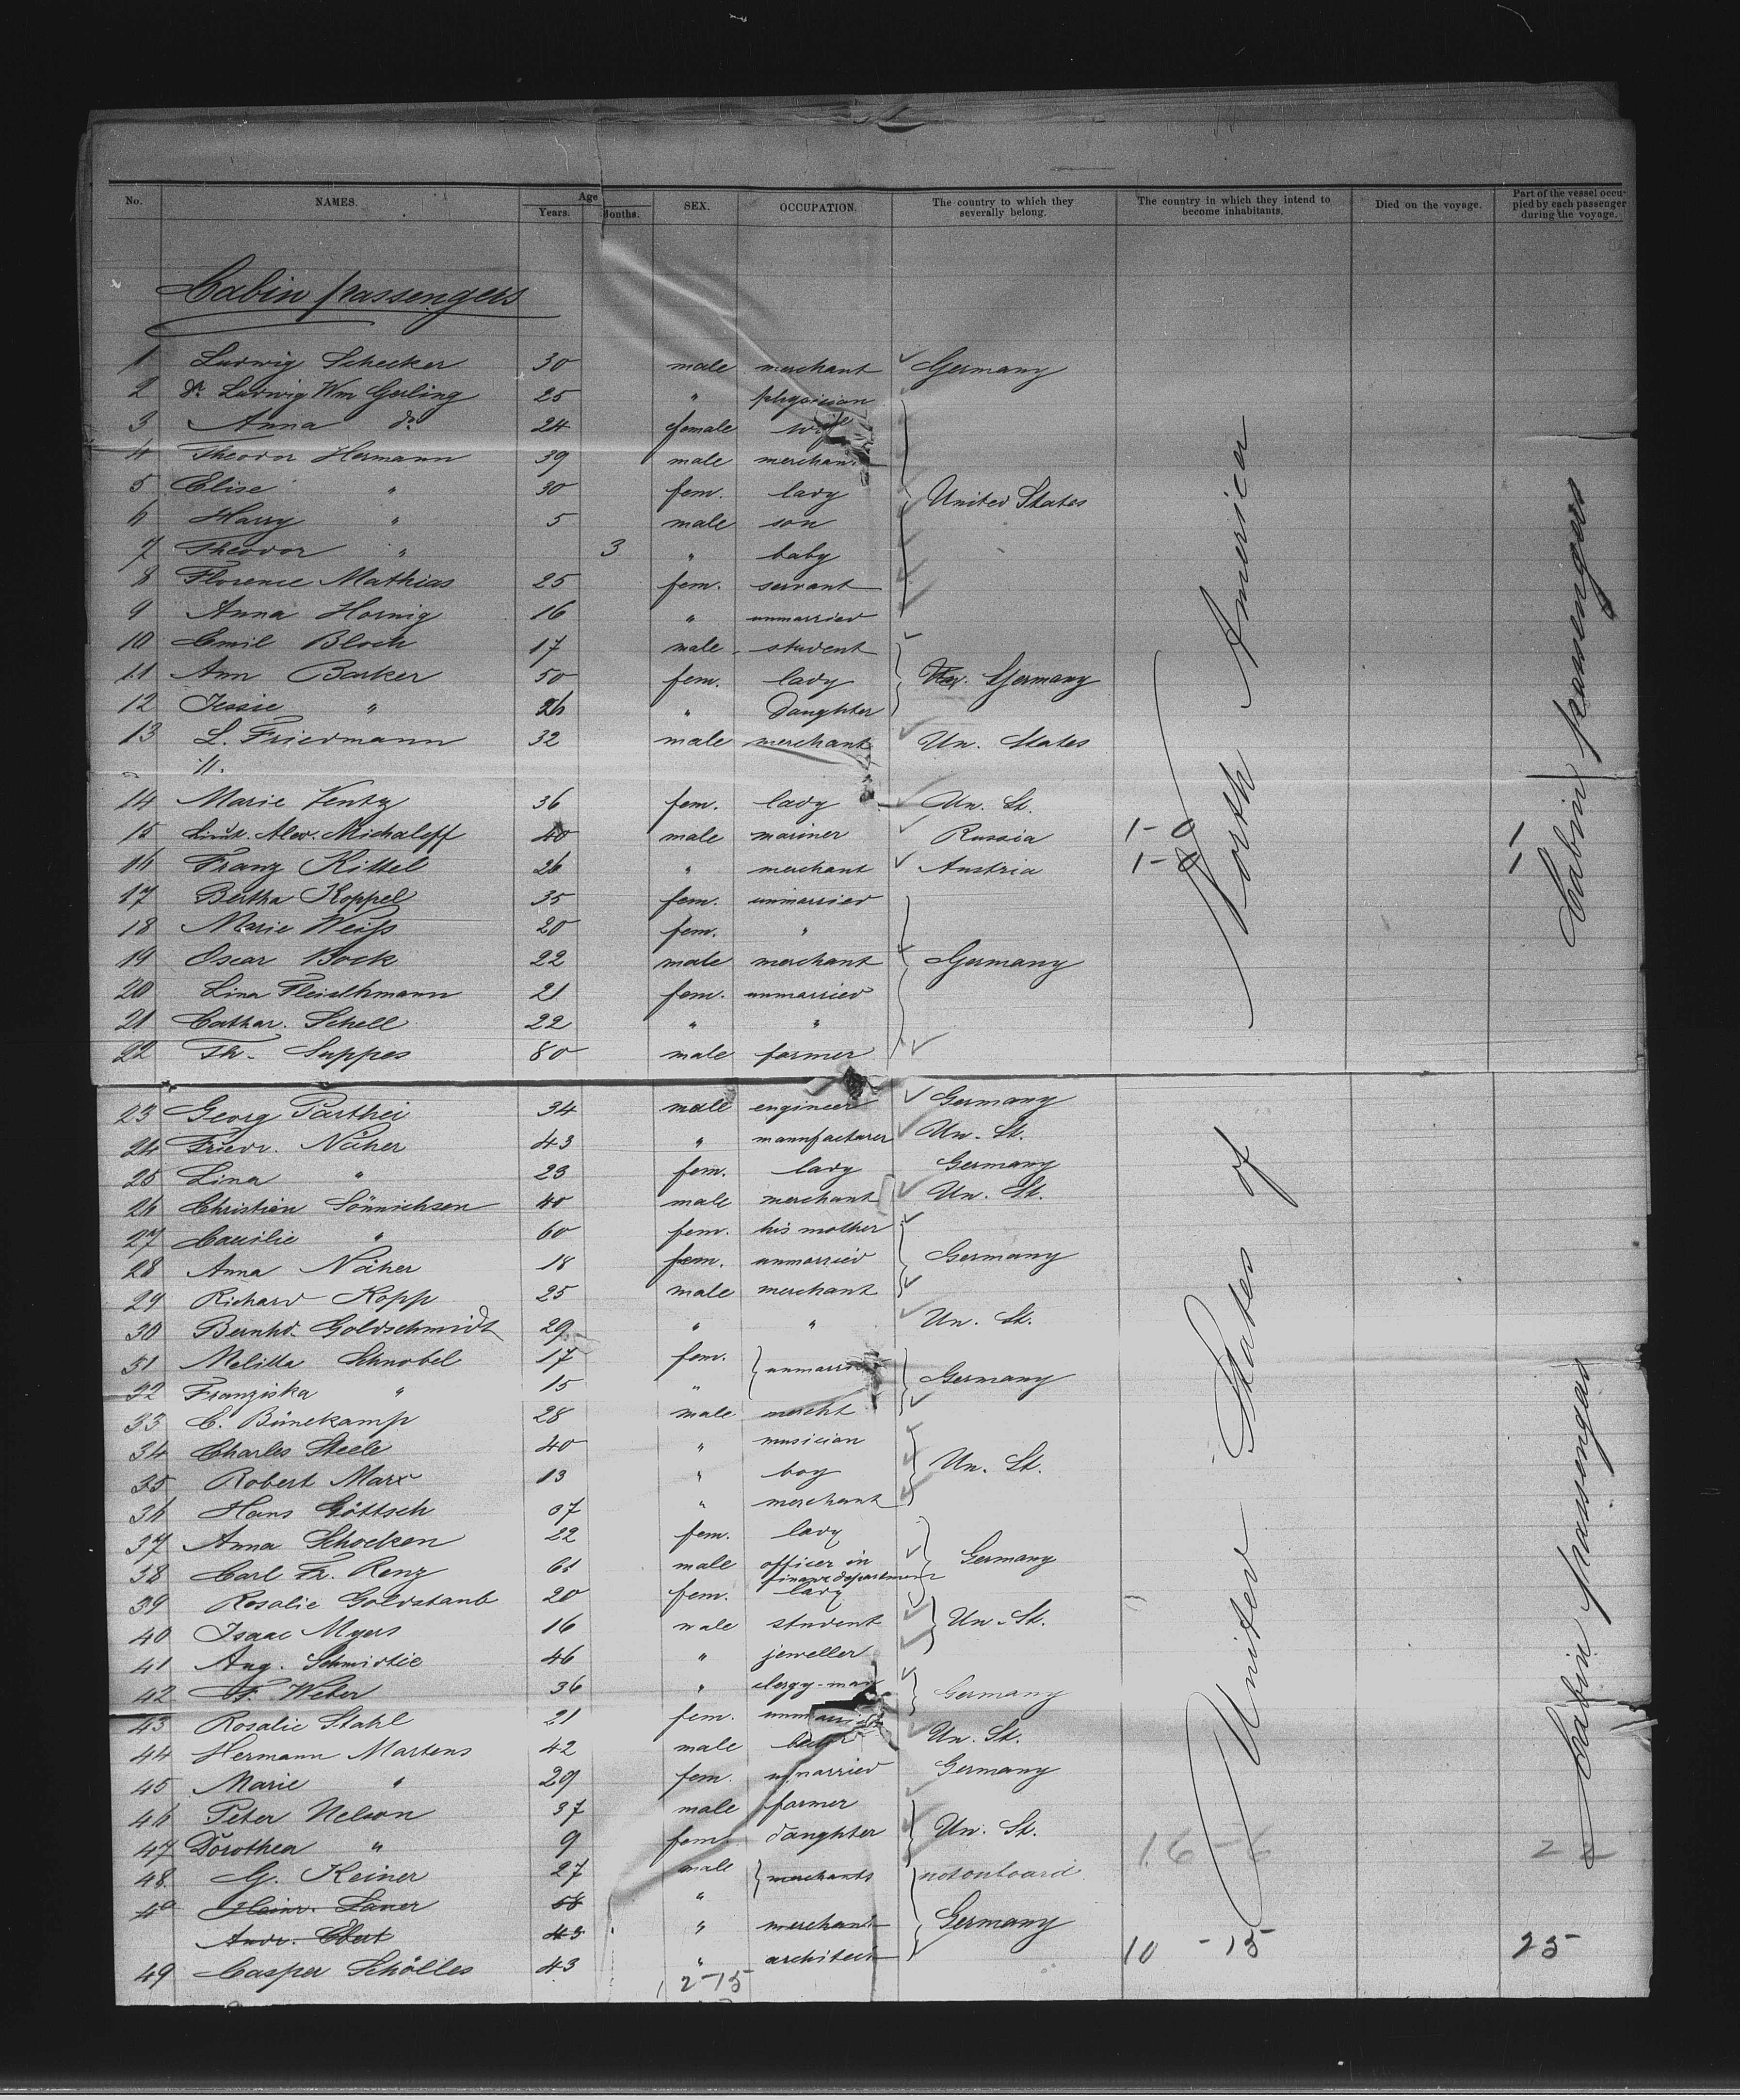 No. NAMES. Age Years. Months. SEX. OCCUPATION. The country to which they severally belong. The country in which they intend to become inhabitants. Died on the voyage. Part of the vessel occupied by each passenger during the voyage.
Cabin passengers
1 Ludwig Schecker 30 male merchant Germany
2 Dr. Ludwig Wm Gerling 25 " physician
3 Anna do 24 female wife
4 Theodor Hermann 39 male merchant
5 Elise " 30 fem. lady United States
6 Harry " 5 male son
7 Theodor " 3 " baby
8 Florence Mathias 25 fem. servant
9 Anna Hornig 16 " unmarried
10 Emil Bloch 17 male student
11 Ann Barker 50 fem. lady Germany
12 Jessie " 26 " daughter
13 L. Friedmann 32 male merchant Un. States
14 Marie Ventz 36 fem. lady Un. St.
15 Lieut. Alex. Michaloff 40 male mariner Russia 1-0 1
16 Franz Kittel 26 " merchant Austria 1-0 1
17 Bertha Koppel 35 fem. unmarried
18 Marie Weiss 20 fem. "
19 Oscar Bock 22 male merchant Germany
20 Lina Fleischmann 21 fem. unmarried
21 Cathar. Schell 22 " "
22 Th. Suppes 80 male farmer
23 Georg Parthei 34 male engineer Germany
24 Friedr. Näher 43 " manufacturer Un. St.
25 Lina " 23 fem. lady Germany
26 Christian Sönnichsen 40 male merchant Un. St.
27 Caecilie " 60 fem. his mother
28 Anna Näher 18 fem. unmarried Germany
29 Richard Kopp 25 male merchant
30 Bernhd. Goldschmidt 29 " " Un. St.
31 Melitta Schnobel 17 fem. unmarried
32 Franziska " 15 " Germany
33 C. Bünekamp 28 male mercht
34 Charles Steele 40 " musician
35 Robert Marx 13 " boy Un. St.
36 Hans Göttsch 37 " merchant
37 Anna Schocken 22 fem. lady
38 Carl Fr. Renz 61 male officer in finance department Germany
39 Rosalie Goldstaub 20 fem. lady
40 Isaac Myers 16 male student Un. St.
41 Aug. Schmidtie 46 " jeweller
42 F. Weber 36 " clergy-man Germany
43 Rosalie Stahl 21 fem. unmarried
44 Hermann Martens 42 male Un. St.
45 Marie " 29 fem. unmarried Germany
46 Peter Nelson 37 male farmer
47 Dorothea " 9 fem. daughter Un. St.
48 G. Keiner 27 male merchants not on board
49 Heinr. Laner 58 "
Andr. Ebert 43 " merchant Germany
49 Casper Schölles 43 " architect
United States of North America
Cabin passengers
Cabin passengers
16-6 22
10 -15 25
2-15